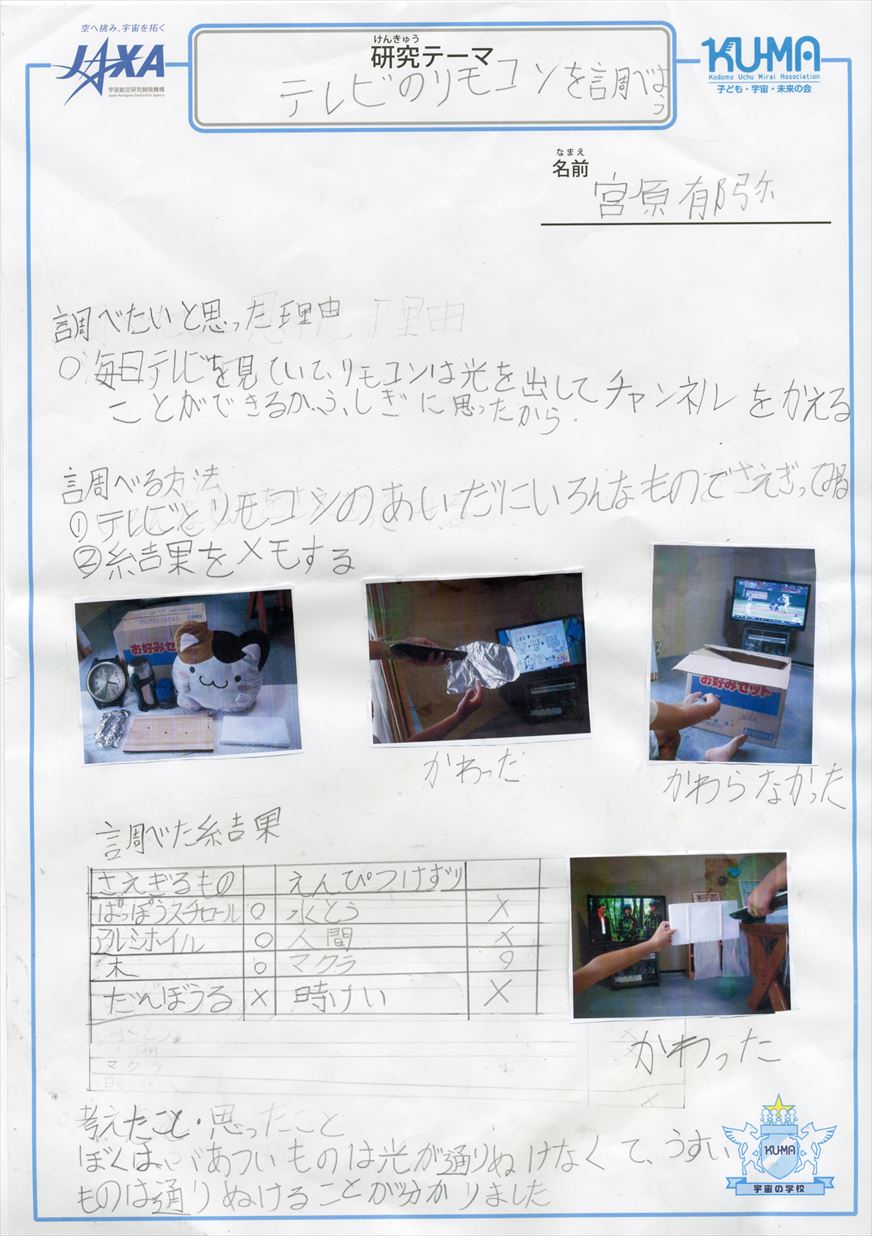 空へ挑み、宇宙を拓く
JAXA
宇宙航空研究開発機構
Japan Aerospace Exploration Agency
けんきゅう
研究テーマ
テレビのリモコンを調べよう
KU-MA
Kodomo Uchu Mirai Association
子ども・宇宙・未来の会
なまえ
名前
宮原有郁弥
調べたいと思った理由
○毎日テレビを見ていて、リモコンは光を出してチャンネルをかえる
ことができるか、ふしぎに思ったから
調べる方法
①テレビとリモコンのあいだにいろんなものでさえぎってみる
②結果をメモする
お好みセット
お好みセット
かわった
かわらなかった
調べた結果
さえぎるもの えんぴつけずり
ぱっぽうスチロール ○ 水とう ×
アルミホイル ○ 人間 ×
木 ○ マクラ ○
だんぼうる × 時けい ×
マクラ
かわった
考えたこと・思ったこと
ぼくは、ぶあついものは光が通りぬけなくて、うすい
ものは通りぬけることが分かりました
KU-MA
宇宙の学校